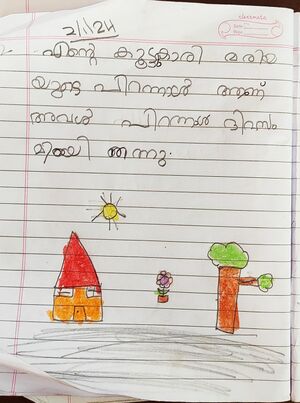 2/1/24
classmate
Date
Page
എന്റെ കൂട്ടുകാരി മരിയ
യുടെ പിറന്നാൾ ആണ്
അവൾ പിറന്നാൾ ദിവസം
മിഠായി തന്നു.